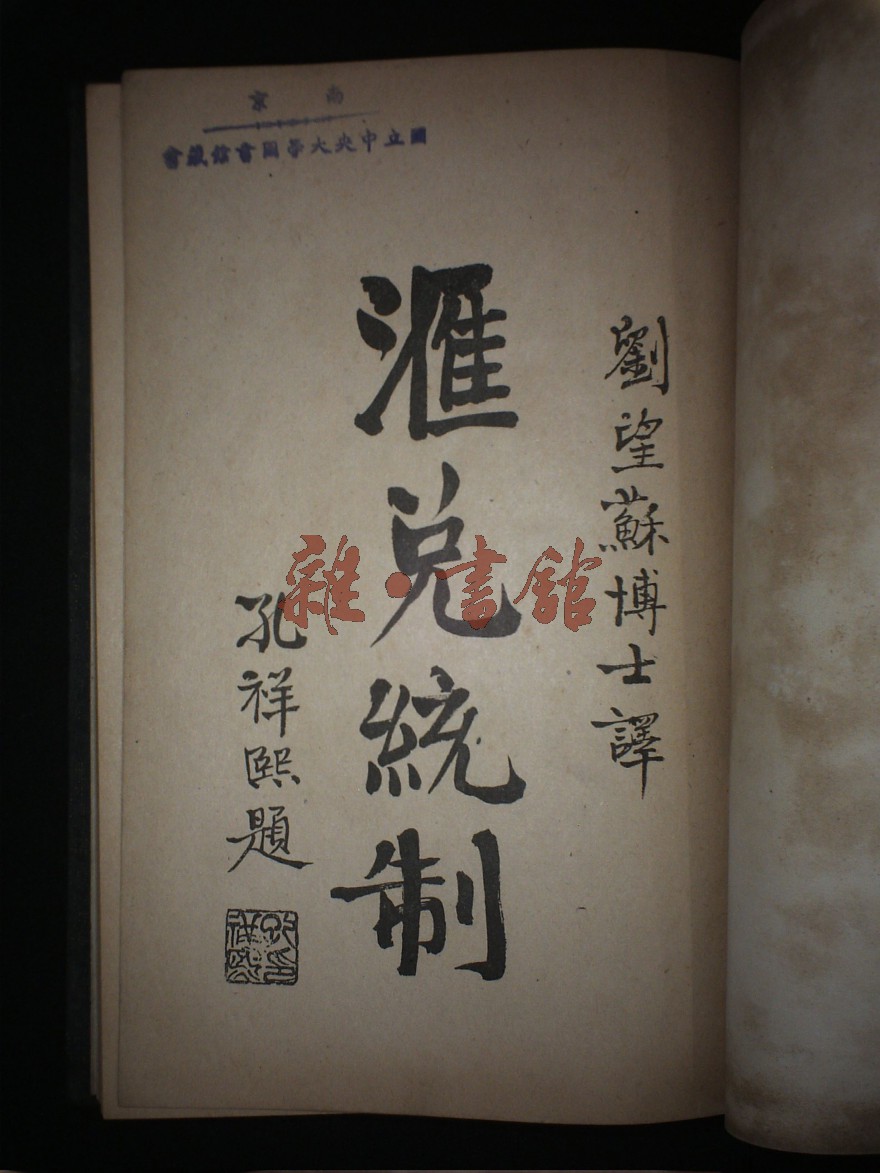 南京
國立中央大學圖書館藏書
劉望蘇博士譯
滙兌統制
孔祥熙題
孔印祥熙
雜·書館